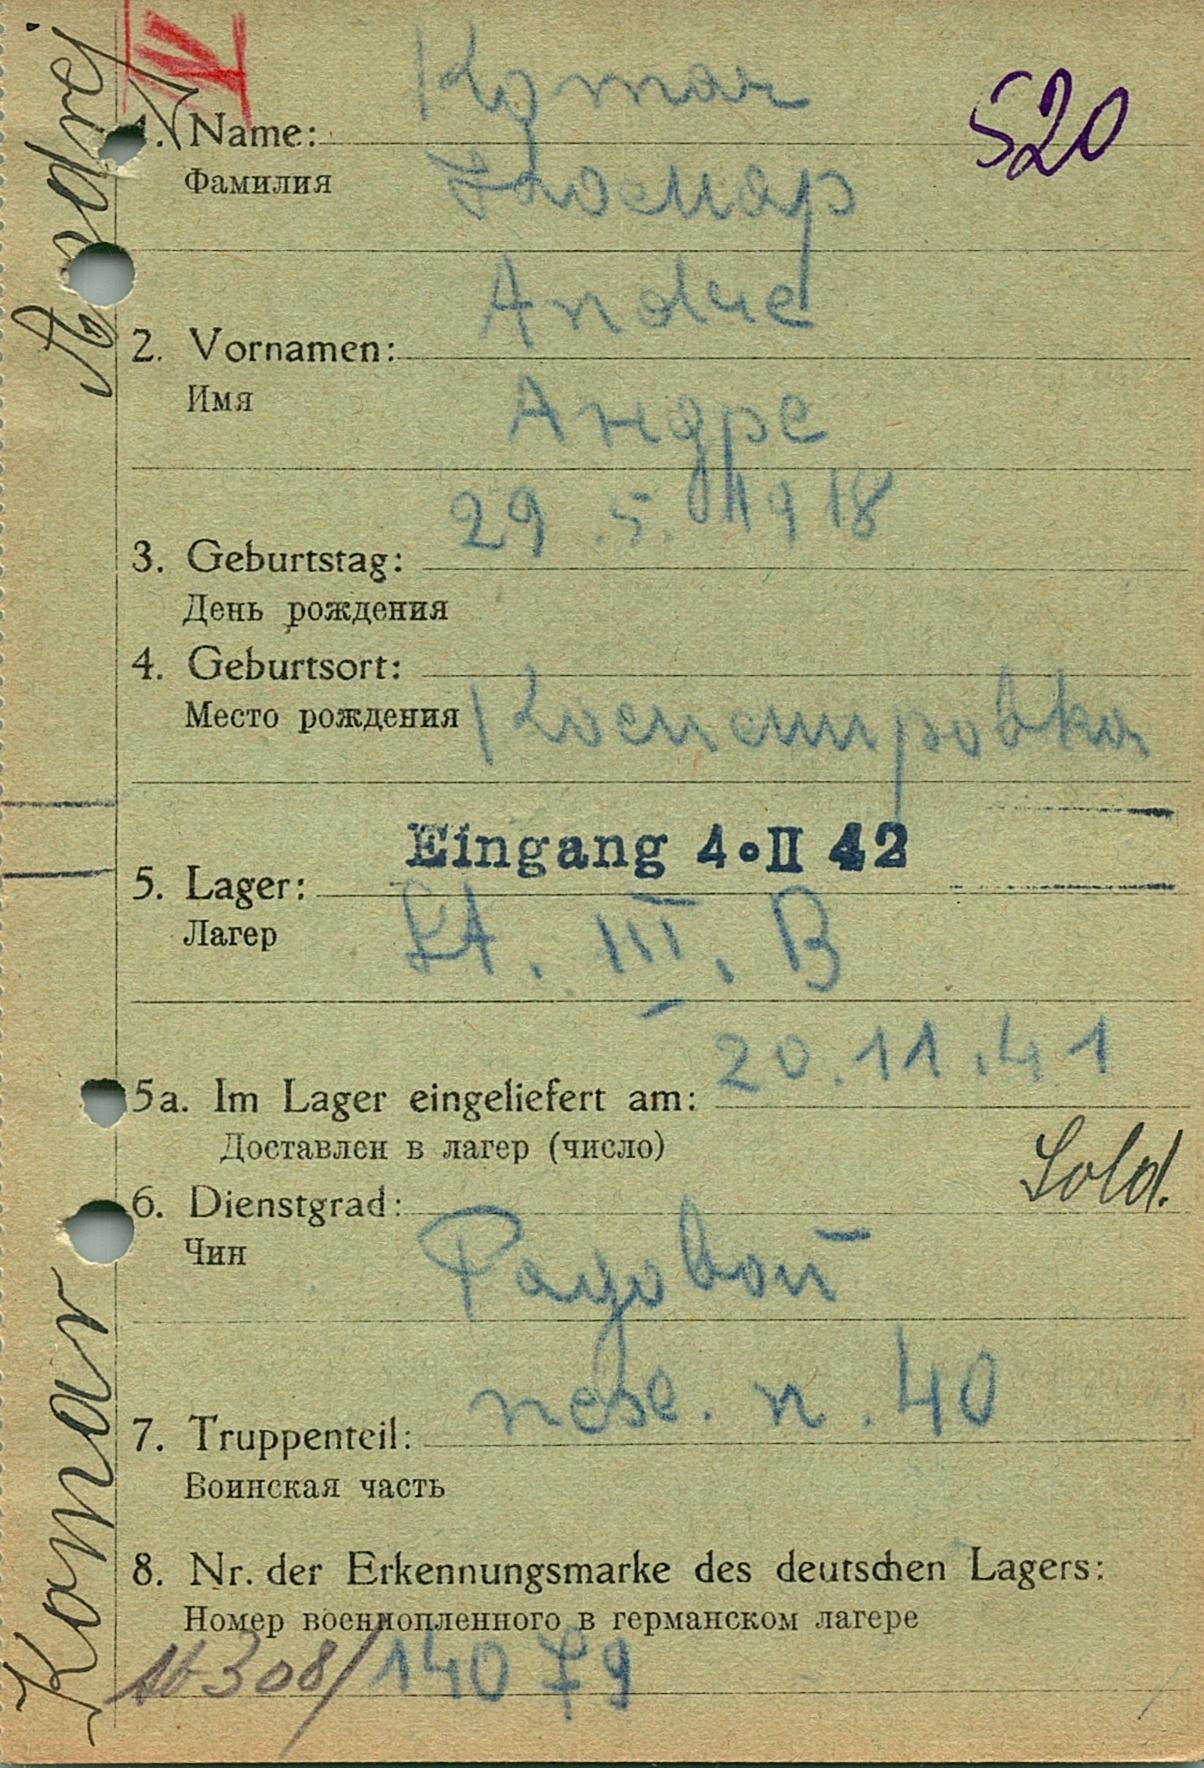 IV
520
Komar
1. Name:
Фамилия
Комар
Andre
2. Vornamen:
Имя
Андре
29.5.1918
3. Geburtstag:
День рождения
4. Geburtsort:
Место рождения
Eingang 4. II 42
5. Lager:
Лагер
St. III. B
20.11.41
5a. Im Lager eingeliefert am:
Доставлен в лагер (число)
Sold.
6. Dienstgrad:
Чин
Рядовой
40
7. Truppenteil:
Воинская часть
8. Nr. der Erkennungsmarke des deutschen Lagers:
Номер военнопленного в германском лагере
308/14079
Komar Andrej